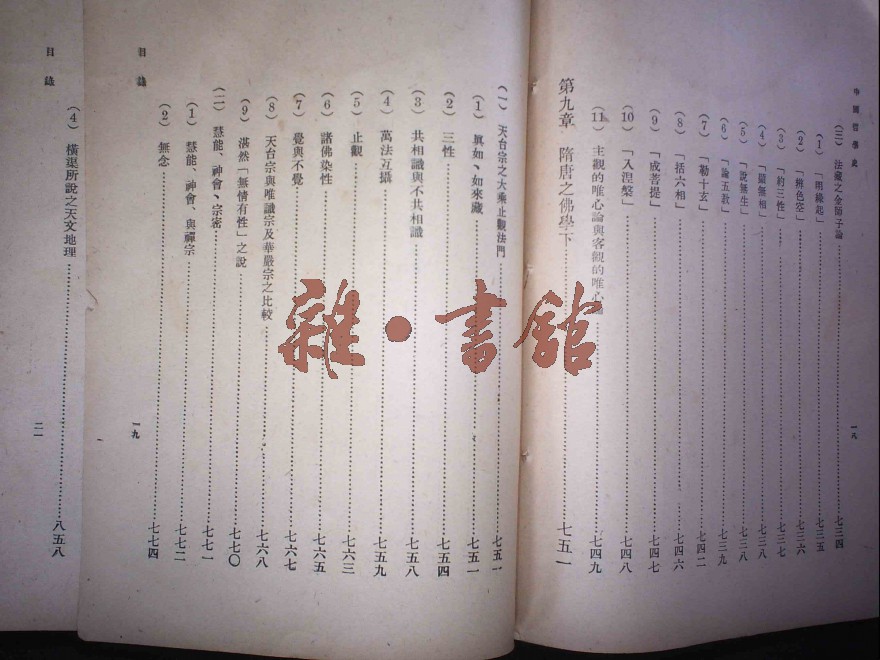 中國哲學史
(三) 法藏之金師子論……七三四
(1)「明緣起」……七三五
(2)「辨色空」……七三六
(3)「約三性」……七三七
(4)「顯無相」……七三八
(5)「說無生」……七三八
(6)「論五教」……七三九
(7)「勒十玄」……七四二
(8)「括六相」……七四六
(9)「成菩提」……七四七
(10)「入涅槃」……七四八
(11) 主觀的唯心論與客觀的唯心論……七四九
第九章 隋唐之佛學下……七五一
一八
目錄
(一) 天台宗之大乘止觀法門……七五一
(1) 眞如、如來藏……七五一
(2) 三性……七五四
(3) 共相識與不共相識……七五八
(4) 萬法互攝……七五九
(5) 止觀……七六三
(6) 諸佛染性……七六五
(7) 覺與不覺……七六七
(8) 天台宗與唯識宗及華嚴宗之比較……七六八
(9) 湛然「無情有性」之說……七七〇
(二) 慧能、神會、宗密……七七一
(1) 慧能、神會、與禪宗……七七二
(2) 無念……七七四
一九
目錄
(4) 橫渠所說之天文地理……八五八
二一
雜·書館